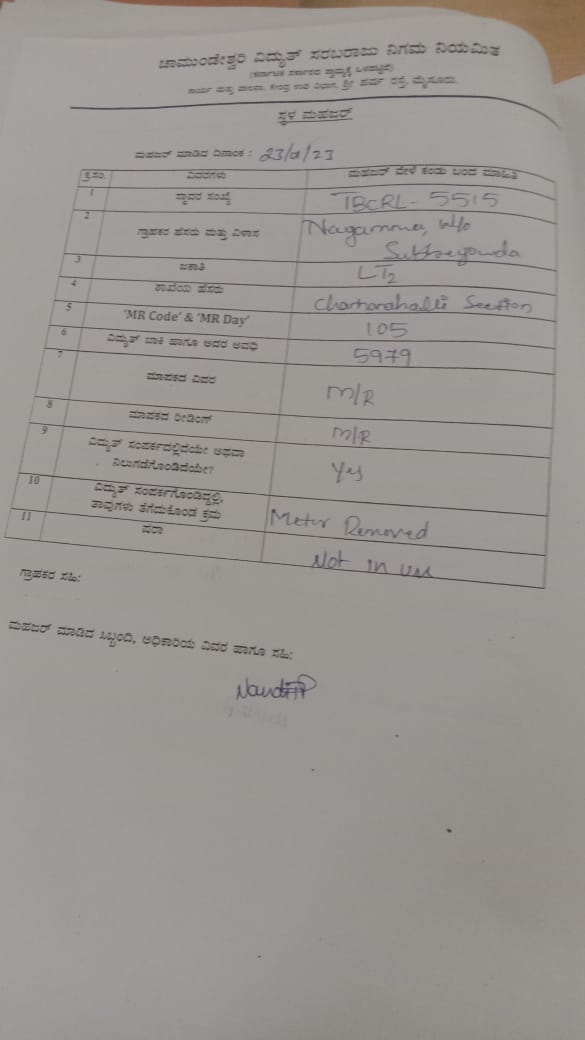 ಚಾಮುಂಡೇಶ್ವರಿ ವಿದ್ಯುತ್ ಸರಬರಾಜು ನಿಗಮ ನಿಯಮಿತ
(ಕರ್ನಾಟಕ ಸರ್ಕಾರದ ಸ್ವಾಮ್ಯಕ್ಕೆ ಒಳಪಟ್ಟಿದೆ)
ಕಾರ್ಯ ಮತ್ತು ಪಾಲನಾ, ಕೇಂದ್ರ ಉಪ ವಿಭಾಗ, ಶ್ರೀ ಹರ್ಷ ರಸ್ತೆ, ಮೈಸೂರು.
ಸ್ಥಳ ಮಹಜರ್
ಮಹಜರ್ ಮಾಡಿದ ದಿನಾಂಕ : 23/01/23
ಕ್ರ.ಸಂ. ವಿವರಗಳು ಮಹಜರ್ ವೇಳೆ ಕಂಡು ಬಂದ ಮಾಹಿತಿ
1 ಸ್ಥಾವರ ಸಂಖ್ಯೆ TBCRL - 5515
2 ಗ್ರಾಹಕರ ಹೆಸರು ಮತ್ತು ವಿಳಾಸ Nagamma, w/o
3 ಜಕಾತಿ LT2
4 ಶಾಖೆಯ ಹೆಸರು Section
5 'MR Code' & 'MR Day' 105
6 ವಿದ್ಯುತ್ ಬಾಕಿ ಹಾಗೂ ಅದರ ಅವಧಿ 5979
7 ಮಾಪಕದ ವಿವರ M/R
8 ಮಾಪಕದ ರೀಡಿಂಗ್ M/R
9 ವಿದ್ಯುತ್ ಸಂಪರ್ಕದಲ್ಲಿದೆಯೇ ಅಥವಾ
ನಿಲುಗಡೆಗೊಂಡಿದೆಯೇ? Yes
10 ವಿದ್ಯುತ್ ಸಂಪರ್ಕಗೊಂಡಿದ್ದಲ್ಲಿ,
ತಾವುಗಳು ತೆಗೆದುಕೊಂಡ ಕ್ರಮ Meter Removed
11 ಷರಾ Not in use
ಗ್ರಾಹಕರ ಸಹಿ:
ಮಹಜರ್ ಮಾಡಿದ ಸಿಬ್ಬಂದಿ, ಅಧಿಕಾರಿಯ ವಿವರ ಹಾಗೂ ಸಹಿ: